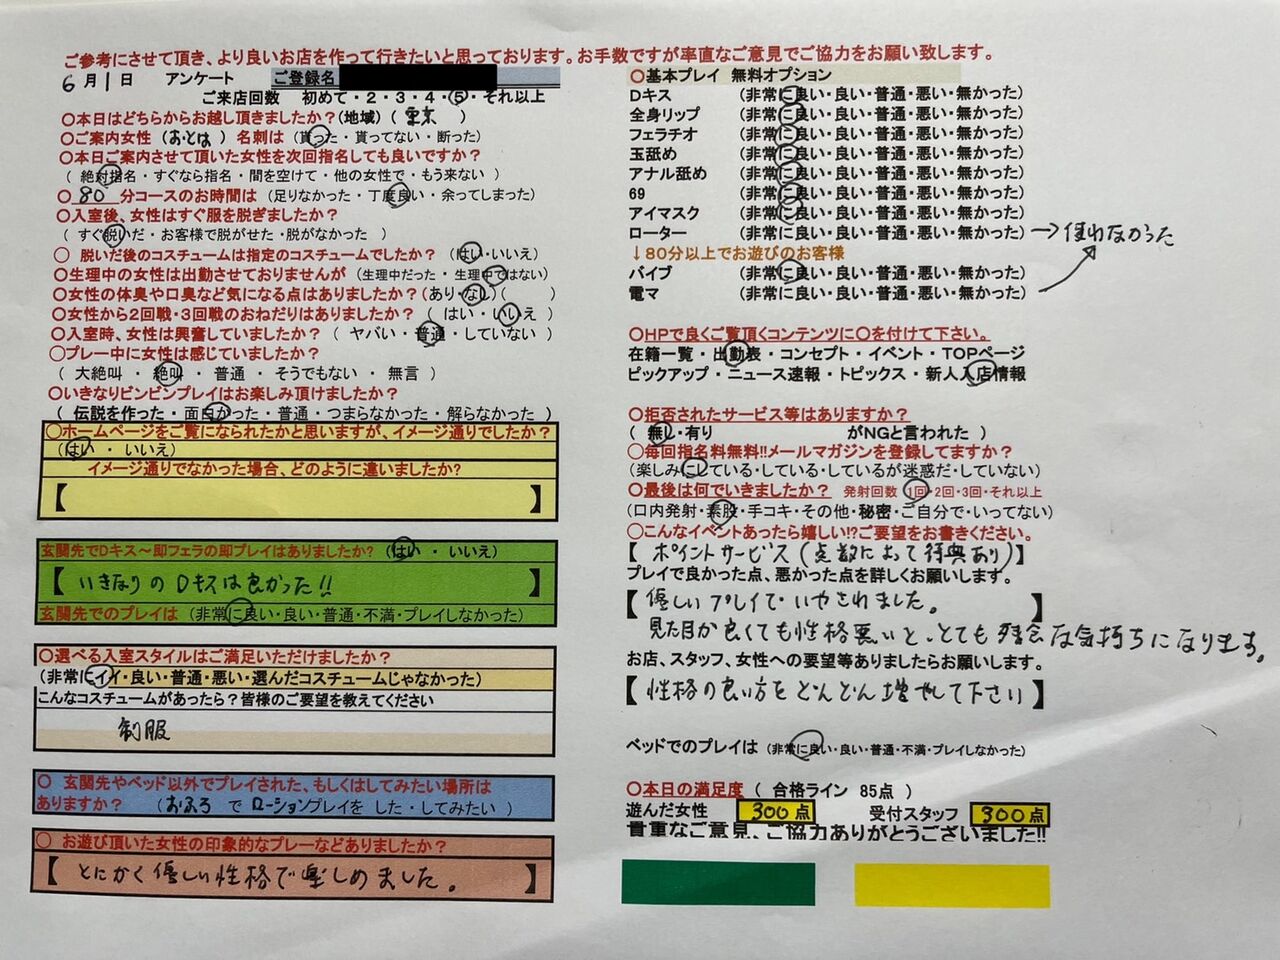 ご参考にさせて頂き、より良いお店を作って行きたいと思っております。お手数ですが率直なご意見でご協力をお願い致します。
6月1日 アンケート ご登録名
ご来店回数 初めて・2・3・4・5・それ以上
〇本日はどちらからお越し頂きましたか?(地域)( 東京 )
〇ご案内女性 (おとは) 名刺は (貰った・貰ってない・断った)
〇本日ご案内させて頂いた女性を次回指名しても良いですか?
( 絶対指名・すぐなら指名・間を空けて・他の女性で・もう来ない )
〇 80 分コースのお時間は (足りなかった・丁度良い・余ってしまった)
〇入室後、女性はすぐ服を脱ぎましたか?
( すぐ脱いだ・お客様で脱がせた・脱がなかった )
〇 脱いだ後のコスチュームは指定のコスチュームでしたか? (はい・いいえ)
〇生理中の女性は出勤させておりませんが (生理中だった・生理中ではない)
〇女性の体臭や口臭など気になる点はありましたか?(あり・なし)( )
〇女性から2回戦・3回戦のおねだりはありましたか? ( はい・いいえ )
〇入室時、女性は興奮していましたか? ( ヤバい・普通・していない )
〇プレー中に女性は感じていましたか?
( 大絶叫・絶叫・普通・そうでもない・無言 )
〇いきなりビンビンプレイはお楽しみ頂けましたか?
( 伝説を作った・面白かった・普通・つまらなかった・解らなかった )
〇ホームページをご覧になられたかと思いますが、イメージ通りでしたか?
(はい ・ いいえ)
イメージ通りでなかった場合、どのように違いましたか?
【 】
玄関先でDキス～即フェラの即プレイはありましたか? (はい ・ いいえ)
【 いきなりのDキスは良かった!! 】
玄関先でのプレイは (非常に良い・良い・普通・不満・プレイしなかった)
〇選べる入室スタイルはご満足いただけましたか?
(非常にイイ・良い・普通・悪い・選んだコスチュームじゃなかった)
こんなコスチュームがあったら?皆様のご要望を教えてください
制服
〇 玄関先やベッド以外でプレイされた、もしくはしてみたい場所は
ありますか? (おふろ で ローションプレイを した・してみたい )
〇 お遊び頂いた女性の印象的なプレーなどありましたか?
【 とにかく優しい性格で楽しめました。 】
〇基本プレイ 無料オプション
Dキス (非常に良い・良い・普通・悪い・無かった)
全身リップ (非常に良い・良い・普通・悪い・無かった)
フェラチオ (非常に良い・良い・普通・悪い・無かった)
玉舐め (非常に良い・良い・普通・悪い・無かった)
アナル舐め (非常に良い・良い・普通・悪い・無かった)
69 (非常に良い・良い・普通・悪い・無かった)
アイマスク (非常に良い・良い・普通・悪い・無かった)
ローター (非常に良い・良い・普通・悪い・無かった) →使わなかった
↓80分以上でお遊びのお客様
バイブ (非常に良い・良い・普通・悪い・無かった)
電マ (非常に良い・良い・普通・悪い・無かった)
〇HPで良くご覧頂くコンテンツに〇を付けて下さい。
在籍一覧・出勤表・コンセプト・イベント・TOPページ
ピックアップ・ニュース速報・トピックス・新人入店情報
〇拒否されたサービス等はありますか?
( 無し・有り がNGと言われた )
〇毎回指名料無料!!メールマガジンを登録してますか?
(楽しみにしている・している・しているが迷惑だ・していない)
〇最後は何でいきましたか? 発射回数 1回・2回・3回・それ以上
(口内発射・素股・手コキ・その他・秘密・ご自分で・いってない)
〇こんなイベントあったら嬉しい!?ご要望をお書きください。
【 ポイントサービス(点数によって得典あり)】
プレイで良かった点、悪かった点を詳しくお願いします。
【 優しいプレイでいやされました。 】
見た目が良くても性格悪いと、とても残念な気持ちになります。
お店、スタッフ、女性への要望等ありましたらお願いします。
【性格の良い方をどんどん増やして下さい】
ベッドでのプレイは (非常に良い・良い・普通・不満・プレイしなかった)
〇本日の満足度 ( 合格ライン 85点 )
遊んだ女性 300点 受付スタッフ 300点
貴重なご意見、ご協力ありがとうございました!!